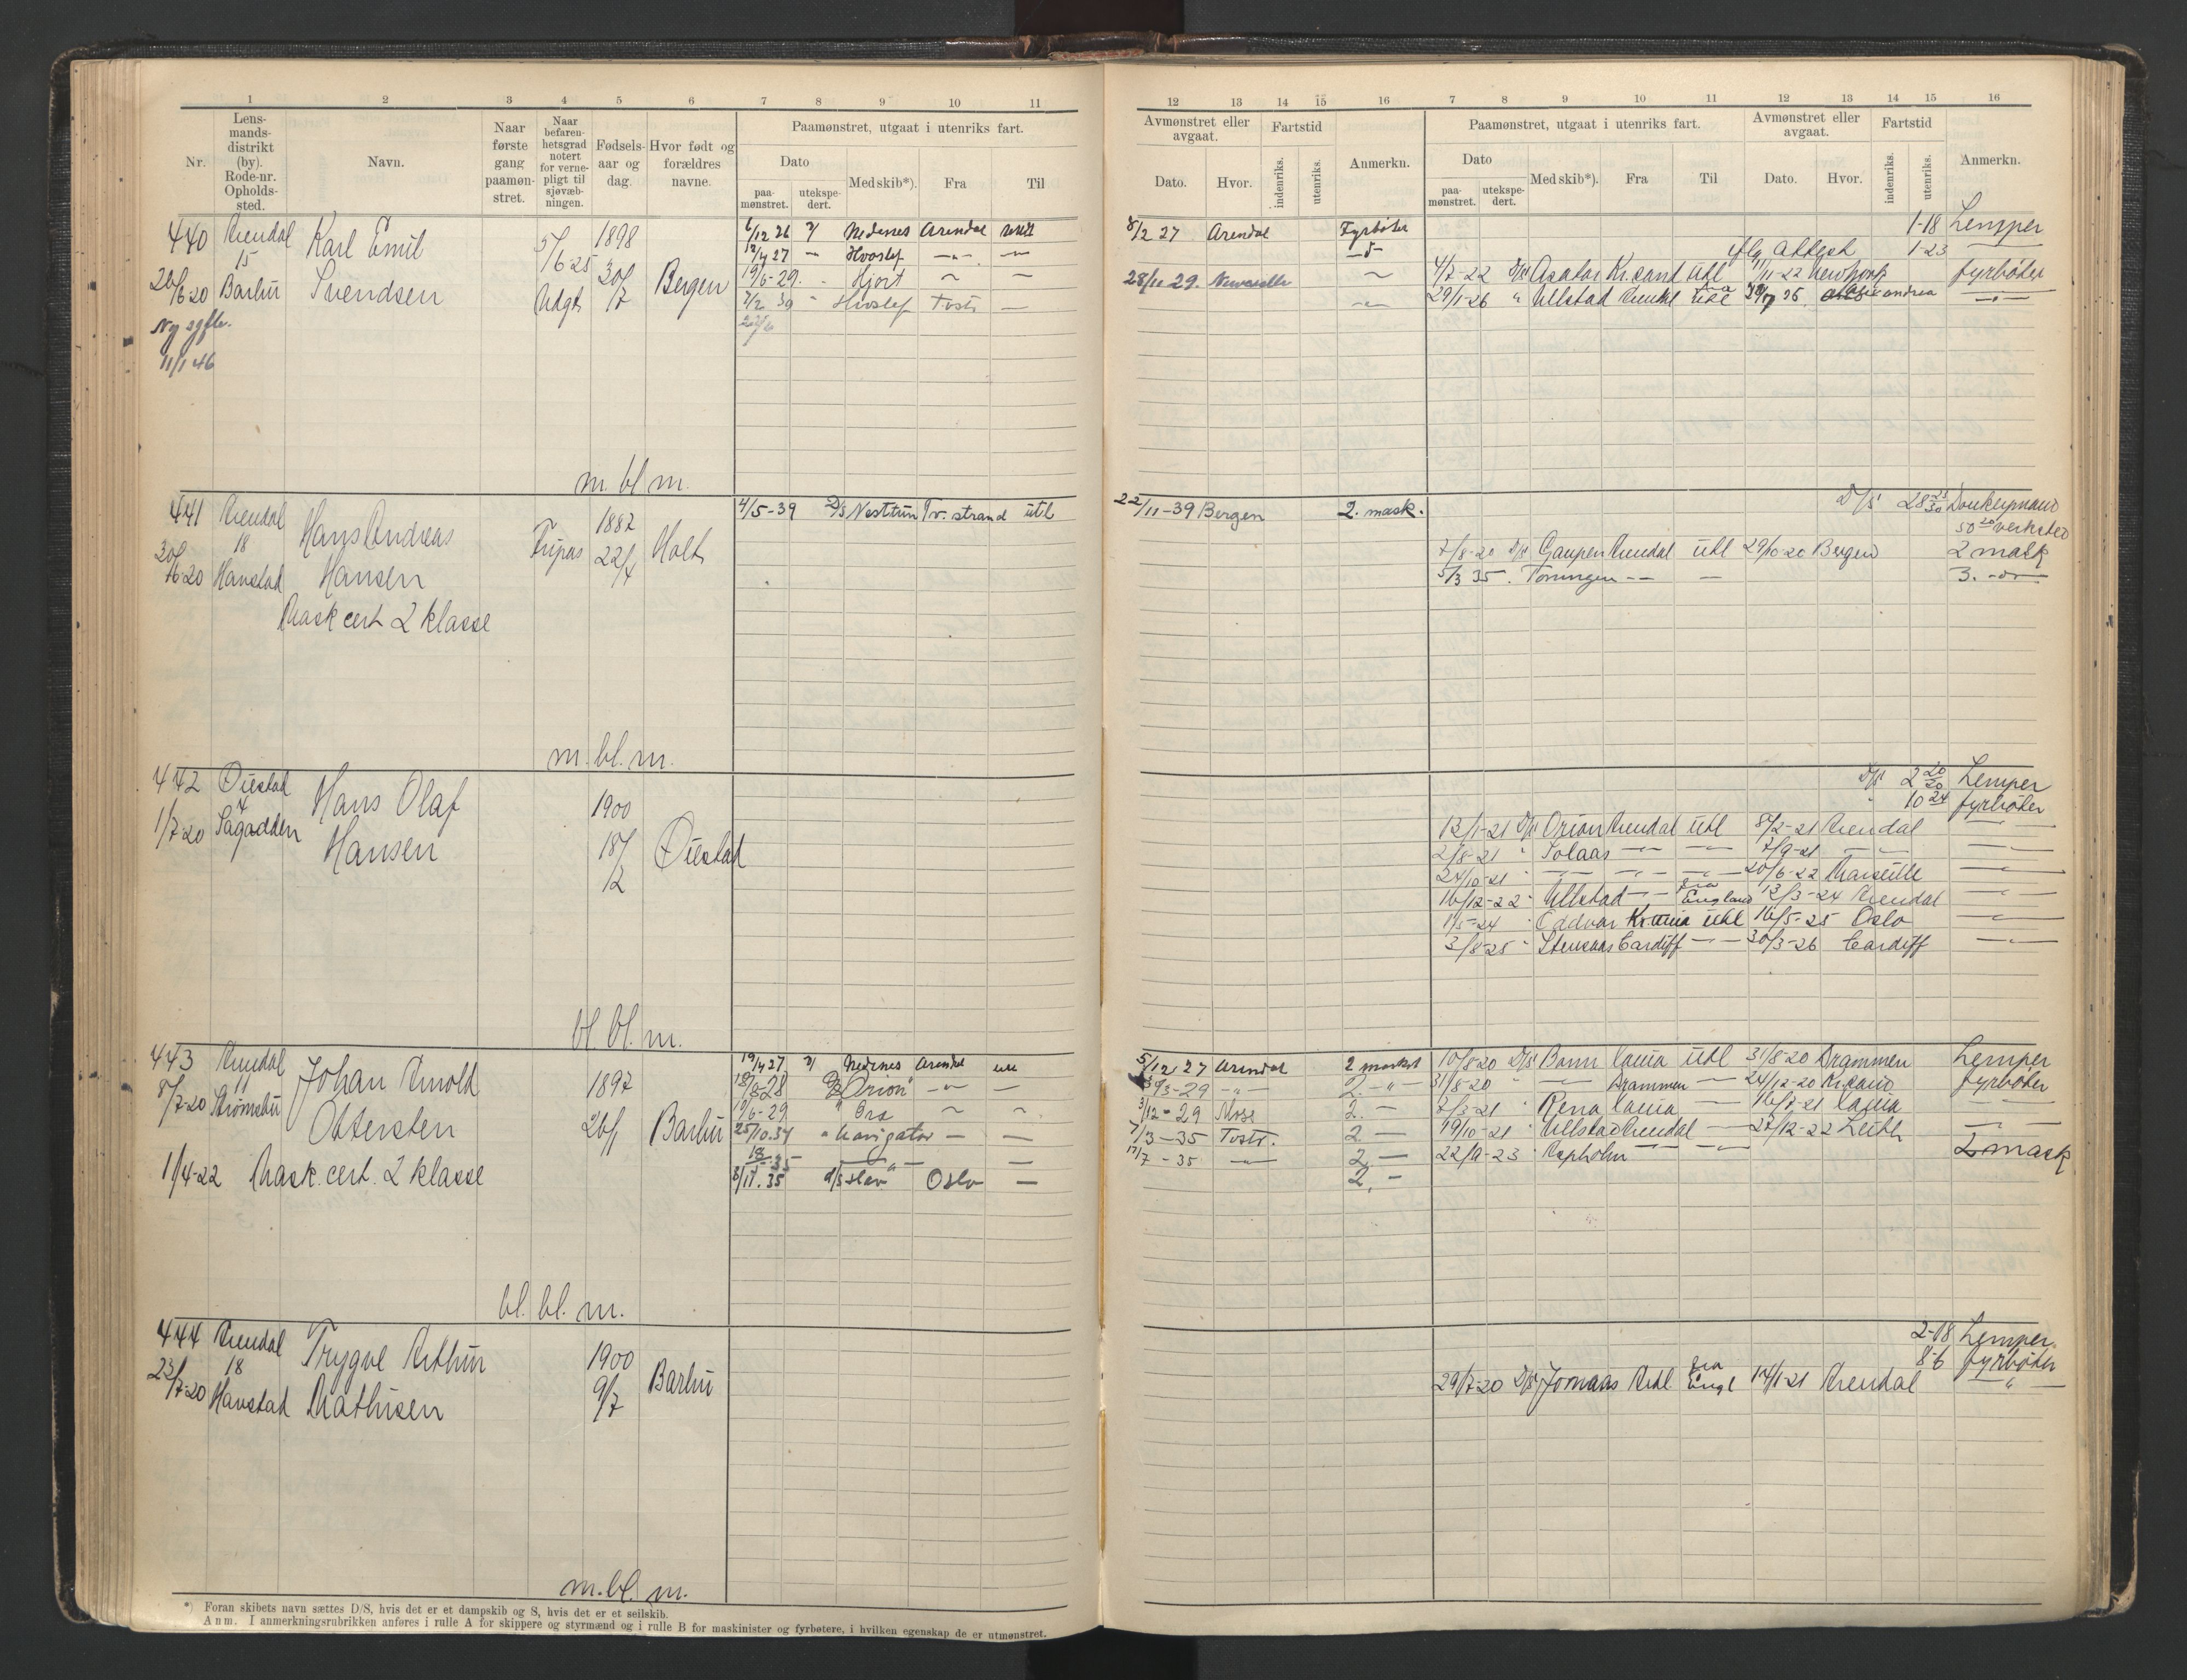 1 2 3 4 5 6 7 8 9 10 11
Nr.
Lens-
mands-
distrikt
(by).
Rode-nr.
Opholds-
sted.
Navn.
Naar
første
gang
paamøn-
stret.
Naar
befaren-
hetsgrad
notert
for verne-
pligt til
sjøvæb-
ningen.
Fødsels-
aar og
dag.
Hvor født og
forældres
navne.
Paamønstret, utgaat i utenriks fart.
Dato
paa-
mønstret.
utekspe-
dert.
Med skib*).
Fra
Til
440 Arendal
15
Karl Emil
Svendsen
28/6-20 Barbu
5/6-25
Udgt
1898
30/7
Bergen
Ny sgfb.
11/1 46
6/12 26 Nedenes Arendal
12/4 27 Hvoslef
19/6-29. Hjort
7/2 39 Hvoslef Tvst
m. bl. m.
441 Arendal
18
Hans Andreas
Hansen
30/6-20 Havstad
Mask cert 2 klasse
Fripas
1882
22/4
Holt
4/5-39 D/S Nesttun Tv.strand utl
m. bl. m.
442 Øiestad
4
Hans Olaf
Hansen
1/7-20 Sagadden
1900
18/12
Øiestad
bl. bl. m.
443 Arendal
11
Johan Arnold
Ottersten
8/7-20 Strømsbu
1897
26/1
Barbu
11/4-22 Mask. cert. 2 klasse
19/4 27 Nedenes Arendal utl
18/8-28 D/S Orion
1/6-29 Bra
25/10.34 Navigator
18/5 35
3/11.35 d/s Slev Oslo
bl. bl. m.
444 Arendal
18
Trygve Arthur
Mathisen
23/7-20 Havstad
1900
9/7
Barbu
m. bl. m.
*) Foran skibets navn sættes D/S, hvis det er et dampskib og S, hvis det er et seilskib.
Anm. I anmerkningsrubrikken anføres i rulle A for skippere og styrmænd og i rulle B for maskinister og fyrbøtere, i hvilken egenskap de er utmønstret.
12 13 14 15 16 7 8 9 10 11 12 13 14 15 16
Avmønstret eller
avgaat.
Dato. Hvor.
Fartstid
indenriks.
utenriks.
Anmerkn.
Paamønstret, utgaat i utenriks fart.
Dato
paa-
mønstret.
utekspe-
dert.
Med skib*).
Fra
Til
Avmønstret eller
avgaat.
Dato. Hvor.
Fartstid
indenriks.
utenriks.
Anmerkn.
8/2 27 Arendal Fyrbøter
28/11 29. Newcastle
1-18 Lemper
iflg Attest 1-23
4/7-22 D/S Asator Kr.sand Utl 11/11-22 Newport fyrbøter
29/1-26 " Ullstad Arendal utl
22/11-39 Bergen 2. mask.
D/S 28 Donkeymand
verksted
7/8-20 D/S Gaupen Arendal utl 29/10-20 Bergen 2 mask
5/3 35. Torungen 3. -do-
D/S 2 Lemper
10 fyrbøter
12/1-21 D/S Orion Arendal utl 8/2-21 Arendal
2/8-21 " Solaas 7/9-21
24/10-21 20/6-22 Marseille
16/12-22 " Ullstad fra England 12/3-24 Arendal
1/5-24 " Oddvar Kr.ania utl 16/5-25 Oslo
3/8-25 " Stensaas Cardiff 30/3-26 Cardiff
5/12 27 Arendal 2 maskst
3/3-29
3/12-29 Moss 2.
7/3-35 Tvstr. 2
17/7-35 2.
2.
10/8-20 D/S Bonn Lauia utl 31/8-20 Drammen Lemper
31/8-20 Drammen 24/12-20 Kr.sand fyrbøter
7/3-21 " Rena 16/7-21
19/10-21 " Ullstad Arendal 27/12-22 Leith
22/9-23 " Aspholm 2 mask
2-18 Lemper
8-6 fyrbøter
29/7-20 D/S Jomaas Ardl. fra Engl 14/1-21 Arendal "